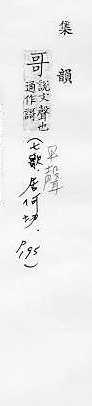 集韻
哥 說文聲也
通作謌
平聲
(七歌.居何切.
P.195)